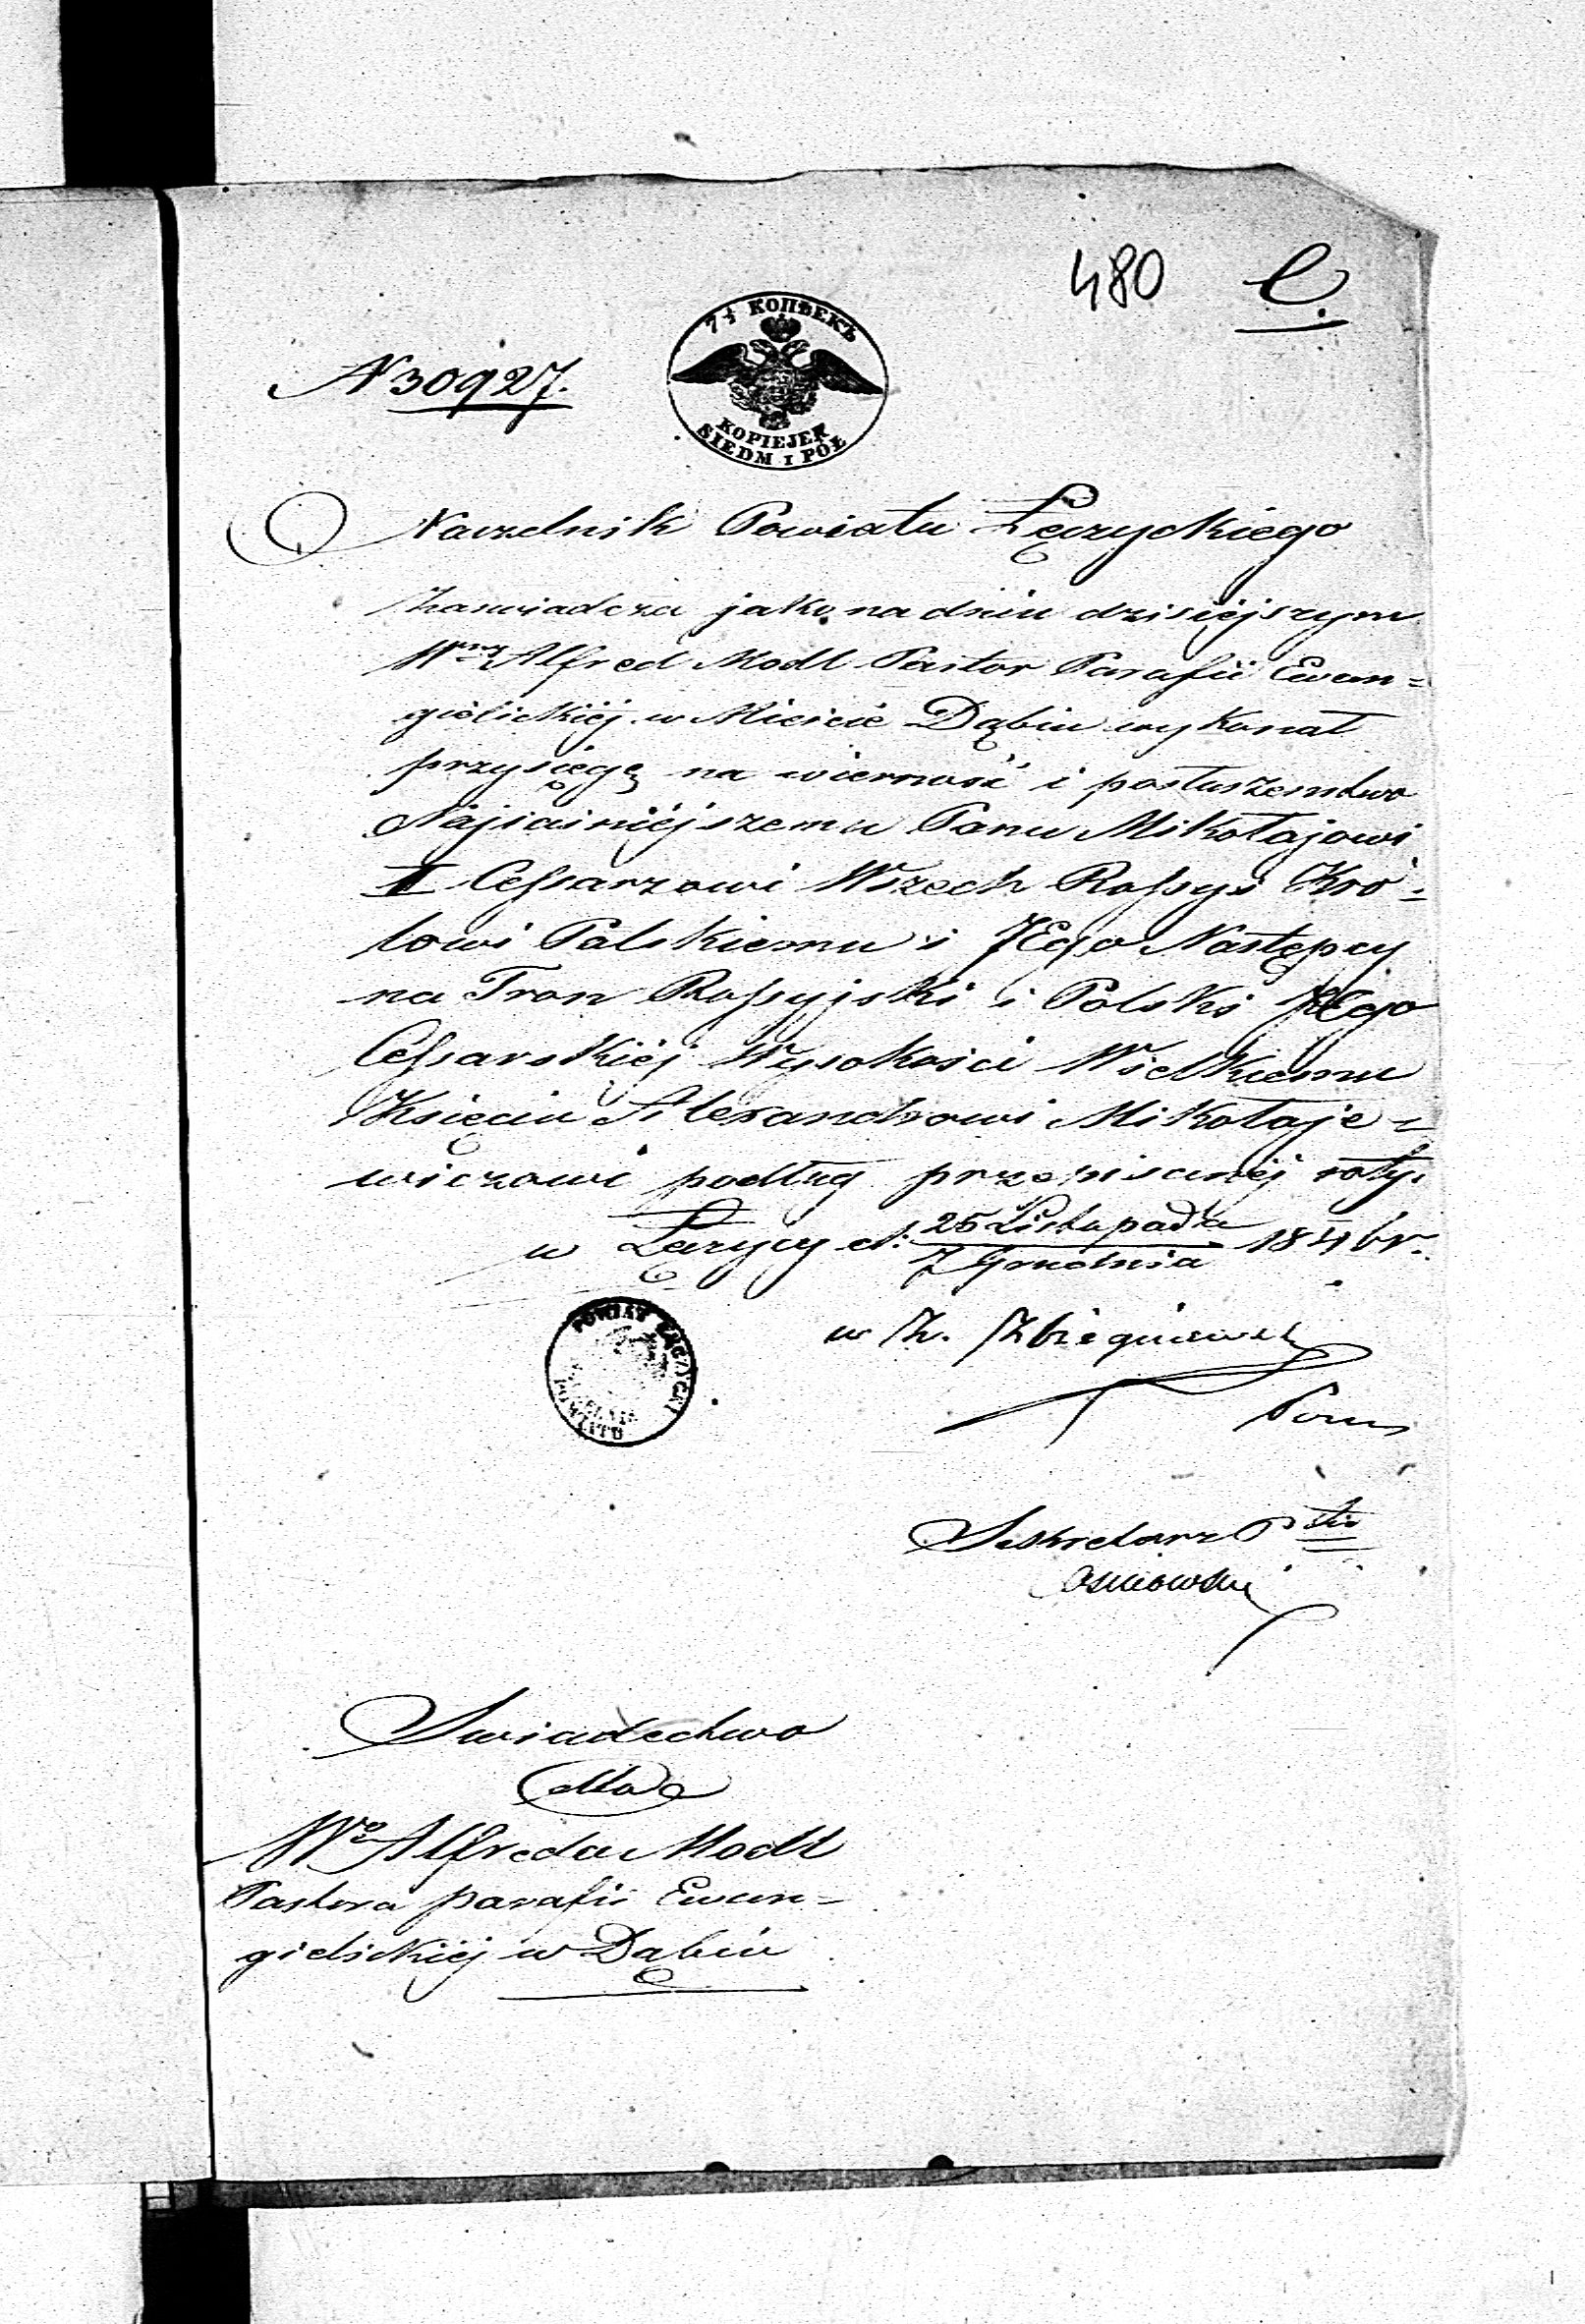 480 C.
7½ КОПѢЕКЪ
KOPIEJEK
SIEDM I PÓŁ
N 30927.
Naczelnik Powiatu Łęczyckiego
Zaswiadcza jako na dniu dzisiéjszym
Wny Alfred Modl Pastor Parafii Ewan=
gielickiéj w Mieście Dąbiu wykonał
przysięgę na wierność i posłuszenstwo
Najiaśniéjszemu Panu Mikołajowi
I Cessarzowi Wszech Rossyi Kró=
lowi Polskiemu i JEgo Następcy
na Tron Rossyiski i Polski JEgo
Cessarskiéj Wysokości Wielkiemu
Xsięciu Alexandrowi Mikołaje=
wiczowi podług przepisanéj roty.
w Łęczycy d: 25 Listopada 1846 r.
7 Grudnia
w Z. Zbiegniewsk
POWIAT ŁĘCZYCKI
POWIATU
Sekretarz Ptu
Swiadectwo
dla
Wo Alfreda Modl
Pastora parafii Ewan=
gielickiéj w Dąbiu